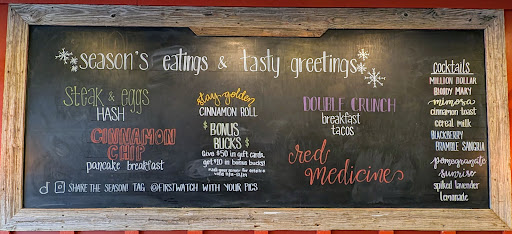 season's eatings & tasty greetings
steak & eggs
HASH
CINNAMON
CHIP
pancake breakfast
stay golden
CINNAMON ROLL
$BONUS
BUCKS$
Give $50 in gift cards,
get $10 in bonus bucks!
DOUBLE CRUNCH
breakfast
tacos
red
MEDICINE
cocktails
MILLION DOLLAR
BLOODY MARY
mimosa
cinnamon toast
cereal milk
BLACKBERRY
BRAMBLE SANGRIA
pomegranate
sunrise
spiked lavender
lemonade
SHARE THE SEASON! TAG @FIRSTWATCH WITH YOUR PICS